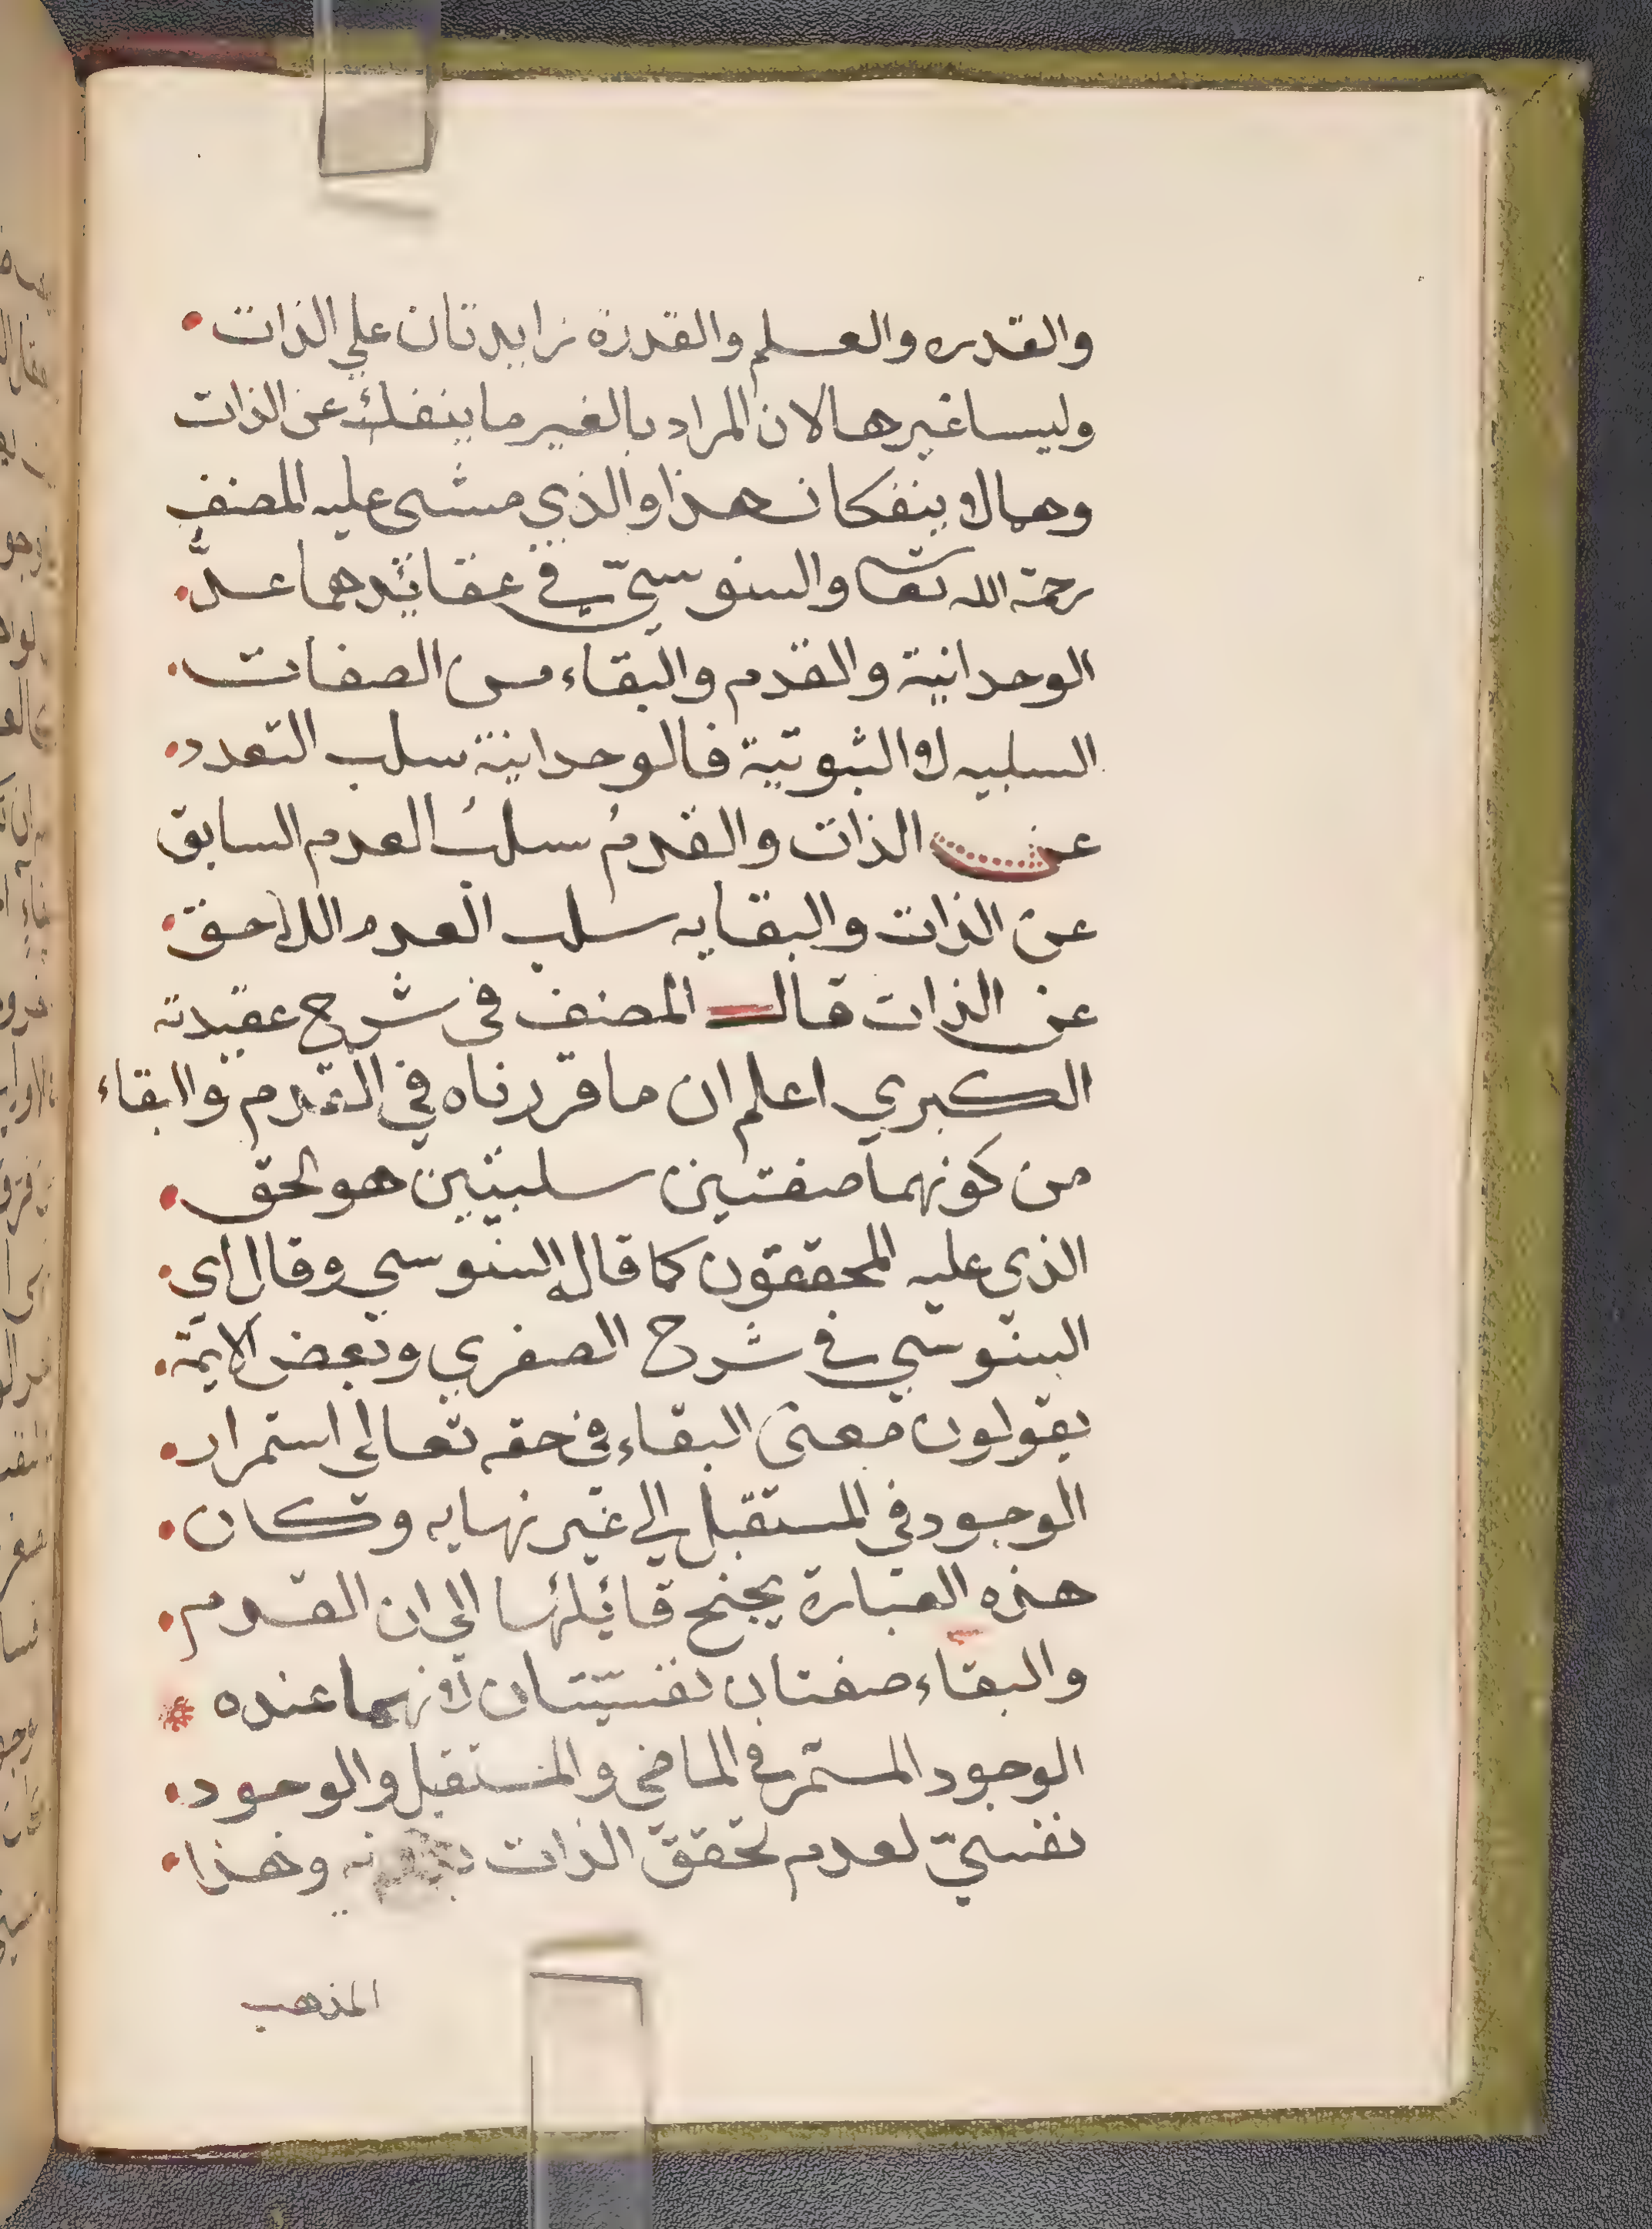 والقدره والعلم والقدرة زايدتان علي الذات
وليسا غيرها لان المراد بالغير ما ينفك عن الذات
وهما لا ينفكان هذا والذي مشى عليه المصنف
رحمة الله تعا والسنوسيّ في عقائدهما عدّ
الوحدانية والقدم والبقاء من الصفات
السلبيه لا الثبوتية فالوحدانية سلب التعدد
عن الذات والقدمُ سلبُ العدم السابق
عن الذات والبقايه سلب العدم اللاحق
عن الذات قال المصنف فى شرح عقيدته
الكبري اعلم ان ما قررناه في القدم والبقاء
من كونهما صفتين سلبيتين هو لحق
الذى عليه المحققون كما قاله السنوسي وقال اي
السنوسي في شرح الصغري وبعض الايمة
يقولون معنى البقاء فى حقه تعالي استمرار
الوجود في المستقبل الي غير نهايه وكان
هذه العبارة يجنح قائلها الي ان القدم
والبقاء صفتان نفسيّتان لانهما عنده
الوجود المستمر في الماضي والمستقبل والوجود
نفسيّ لعدم تحقق الذات بدونه وهذا
المذهب